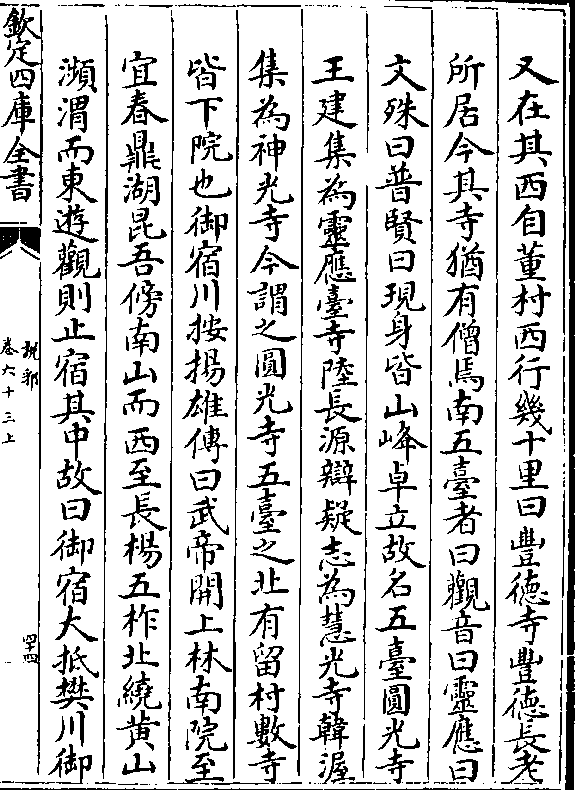 又在其西自董村西行幾十里曰豐德寺豐德長老
所居今其寺猶有僧焉南五臺者曰觀音曰靈應曰
文殊曰普賢曰現身皆山峰卓立故名五臺圓光寺
王建集為靈應臺寺陸長源辯疑志為慧光寺韓渥
集為神光寺今謂之圓光寺五臺之北有留村數寺
皆下院也御宿川按揚雄傳曰武帝開上林南院至
宜春鼎湖昆吾傍南山而西至長楊五柞北繞黄山
瀕渭而東遊觀則止宿其中故曰御宿大抵樊川御
欽定四庫全書
說郛
卷六十三上
四十四